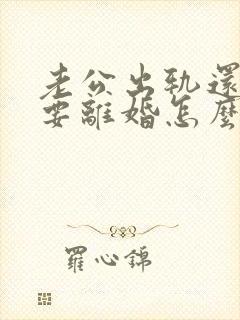 老公出軌還
要離婚怎麼
羅心錦